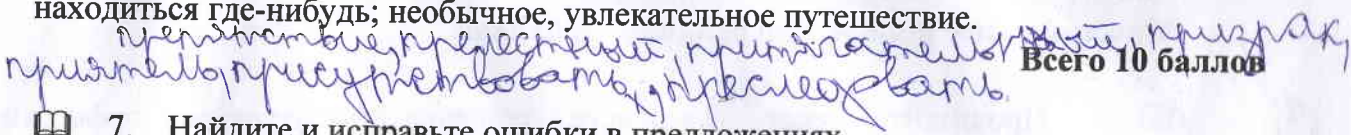 находиться где-нибудь; необычное, увлекательное путешествие.
препятствие, прелестный, притягательный, призрак,
Всего 10 баллов
приятель, присутствовать, преследовать.
7. Найдите и исправьте ошибки в предложениях